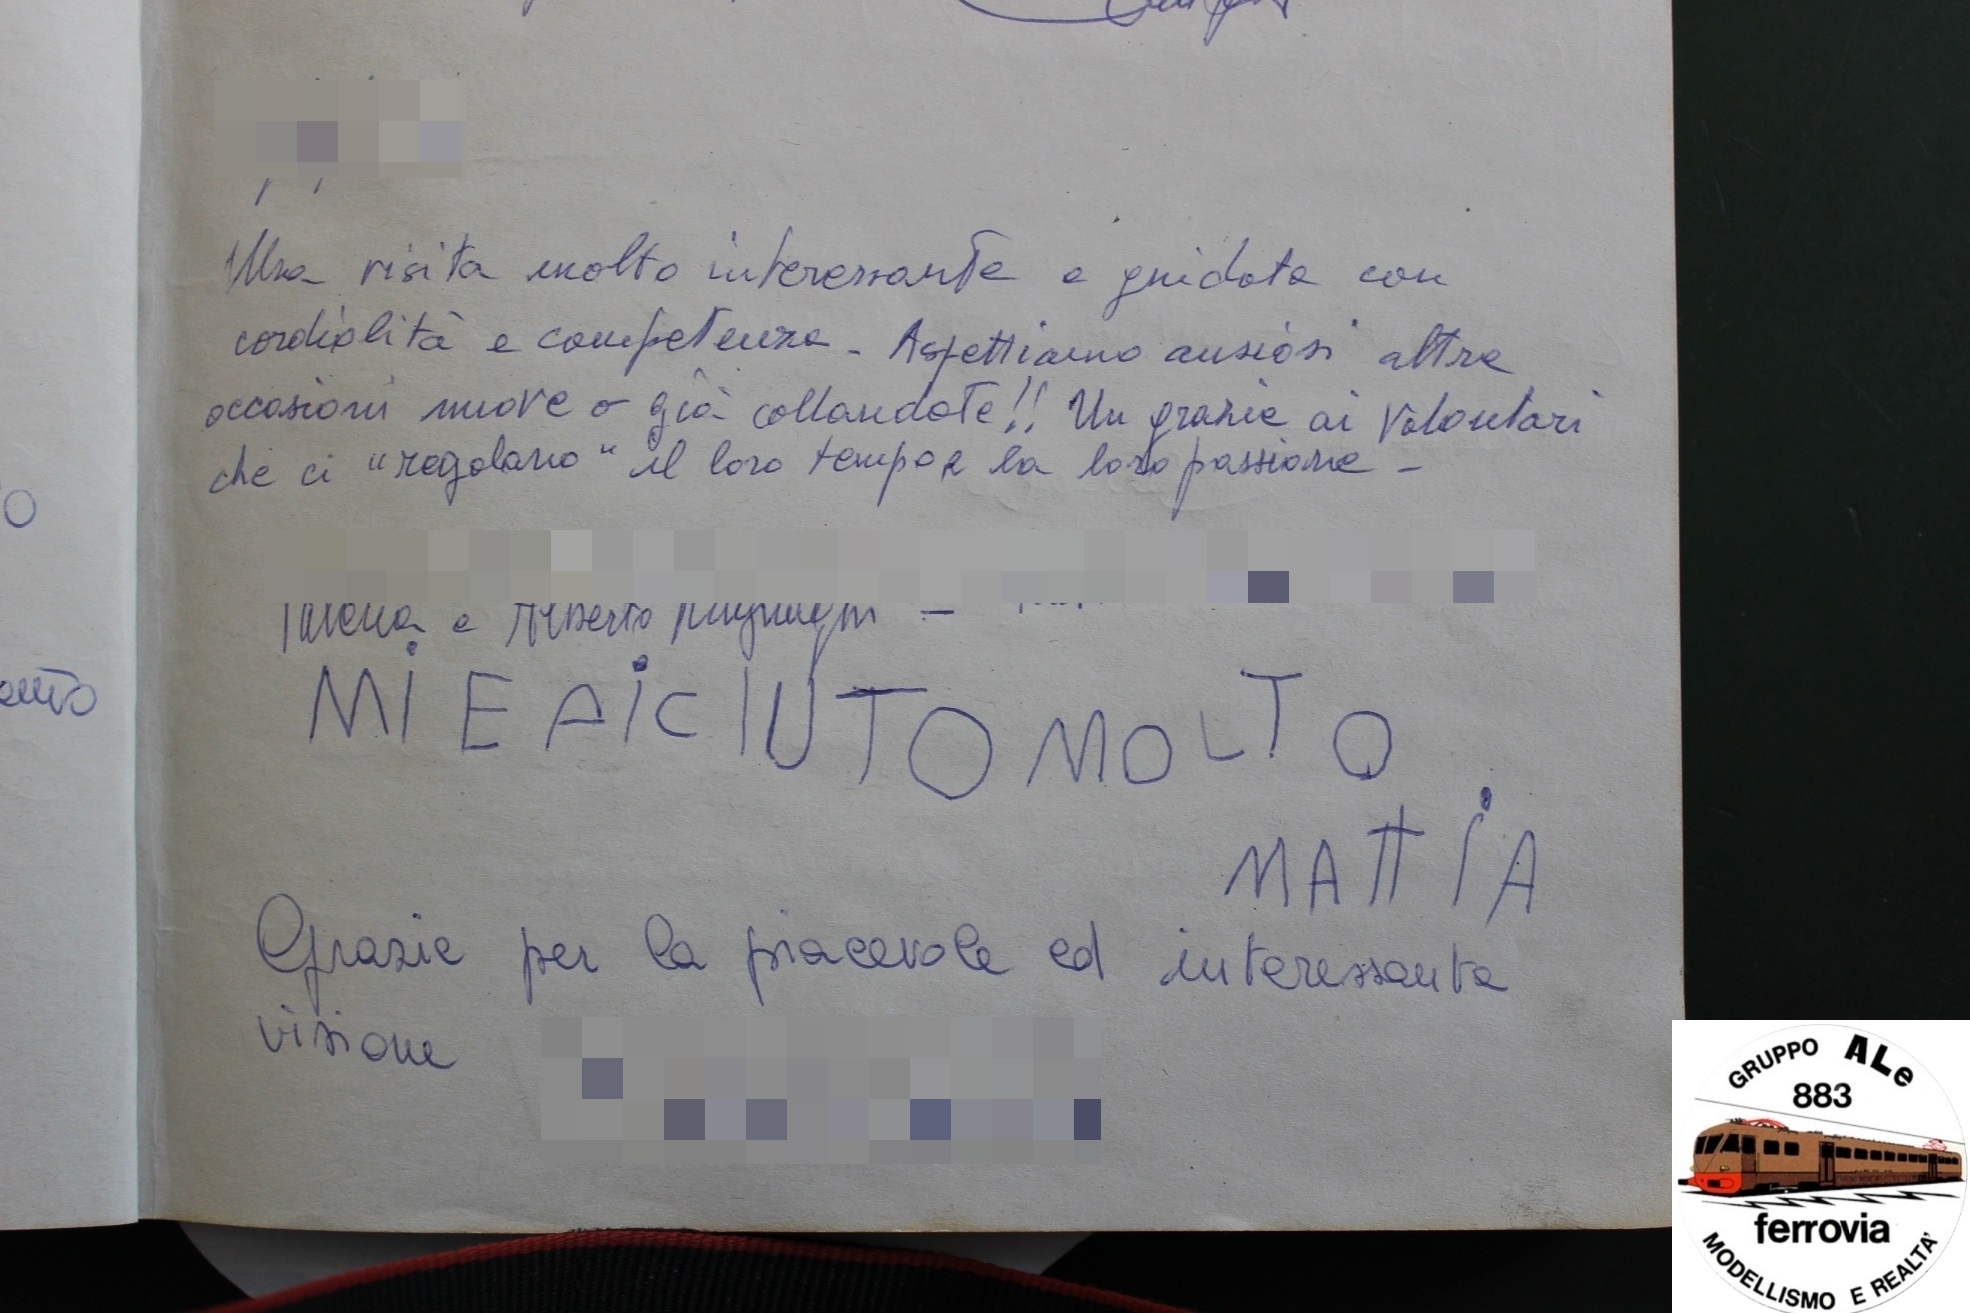 Una visita molto interessante e guidata con
cordialità e competenza - Aspettiamo ansiosi altre
occasioni nuove o già collaudate!! Un grazie ai Volontari
che ci "regalano" il loro tempo e la loro passione -
e Alberto
MI E PICIUTO MOLTO
MATTIA
Grazie per la piacevole ed interessante
visione
GRUPPO ALe
883
ferrovia
MODELLISMO E REALTA'